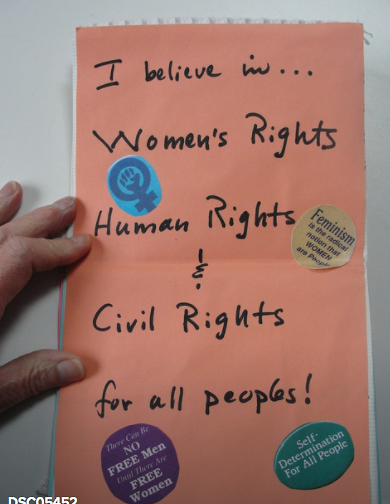 I believe in...
Women's Rights
Human Rights
Feminism
is the radical
notion that
WOMEN
are People
&
Civil Rights
for all peoples!
There Can Be
NO
FREE Men
Until There Are
FREE
Women
Self-
Determination
For All People
DSC05452